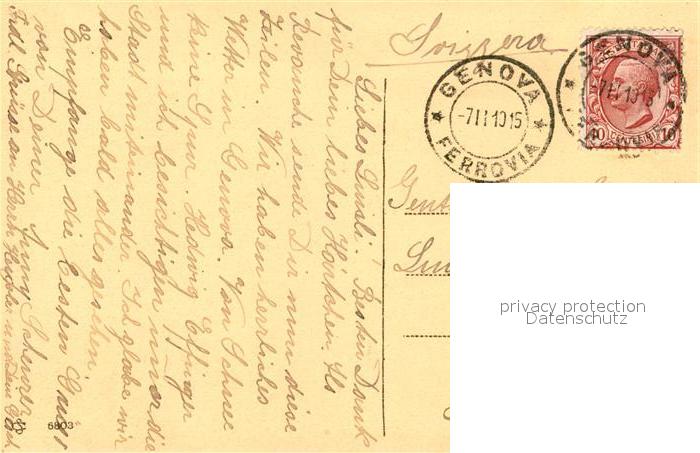 Svizzera
GENOVA
-7 II 1915
FERROVIA
GENOVA
10 CENTESIMI 10
Liebes Luisli! Besten Dank
für Dein liebes Kärtchen. Als
Revanche sende Dir nun diese
Zeilen. Wir haben herrliches
Wetter in Genova. Von Schnee
keine Spur. Hedwig Effinger
und ich besichtigen nun die
Stadt miteinander. Ich glaube wir
haben bald alles gesehen.
Empfange die besten Grüsse
von Deiner
Frdl. Grüsse an Herh.
5803
privacy protection
Datenschutz